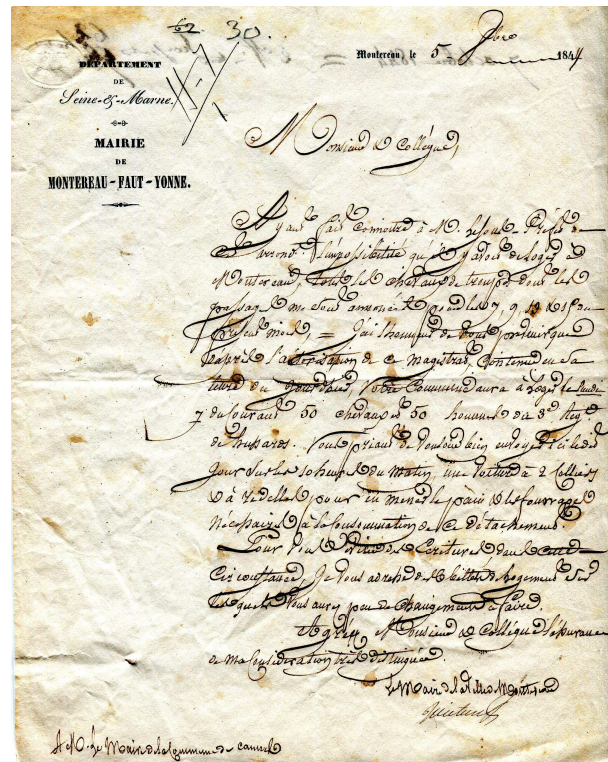 62 30.
Montereau le 5 7bre 1844
DÉPARTEMENT
DE
Seine-&-Marne.
MAIRIE
DE
MONTEREAU-FAUT-YONNE.
Monsieur & Collègue,
Ayant fait connoitre à M. le Sous Préfet de
cet arrondt. l'impossibilité qu'il y aurait de loger à
Montereau, tous les chevaux de troupes dont les
passages me sont annoncés pour les 7, 9, 13 & 15 du
présent mois, = J'ai l'honneur de vous prévenir que
d'après l'autorisation de ce magistrat, contenue en sa
lettre du jourd'hui, votre Commune aura à loger le
7 du courant 50 chevaux et 50 hommes du 3e Regt
de hussards. Vous priant de vouloir bien envoyer ici le dit
jour sur les 10 heures du matin, une voiture à 2 Colliers
& à ridelles pour emmener le pain & les fourrages
nécessaires à la Consommation de ce détachement.
Pour vous éviter des Ecritures dans cette
Circonstance, Je vous adresse des billets de logement sur
lesquels vous aurez peu de changements à faire.
Agréez Monsieur & Collègue l'assurance
de ma Considération très distinguée.
Le Maire de la Ville de Montereau
A M. Le Maire de la Commune de Cannes